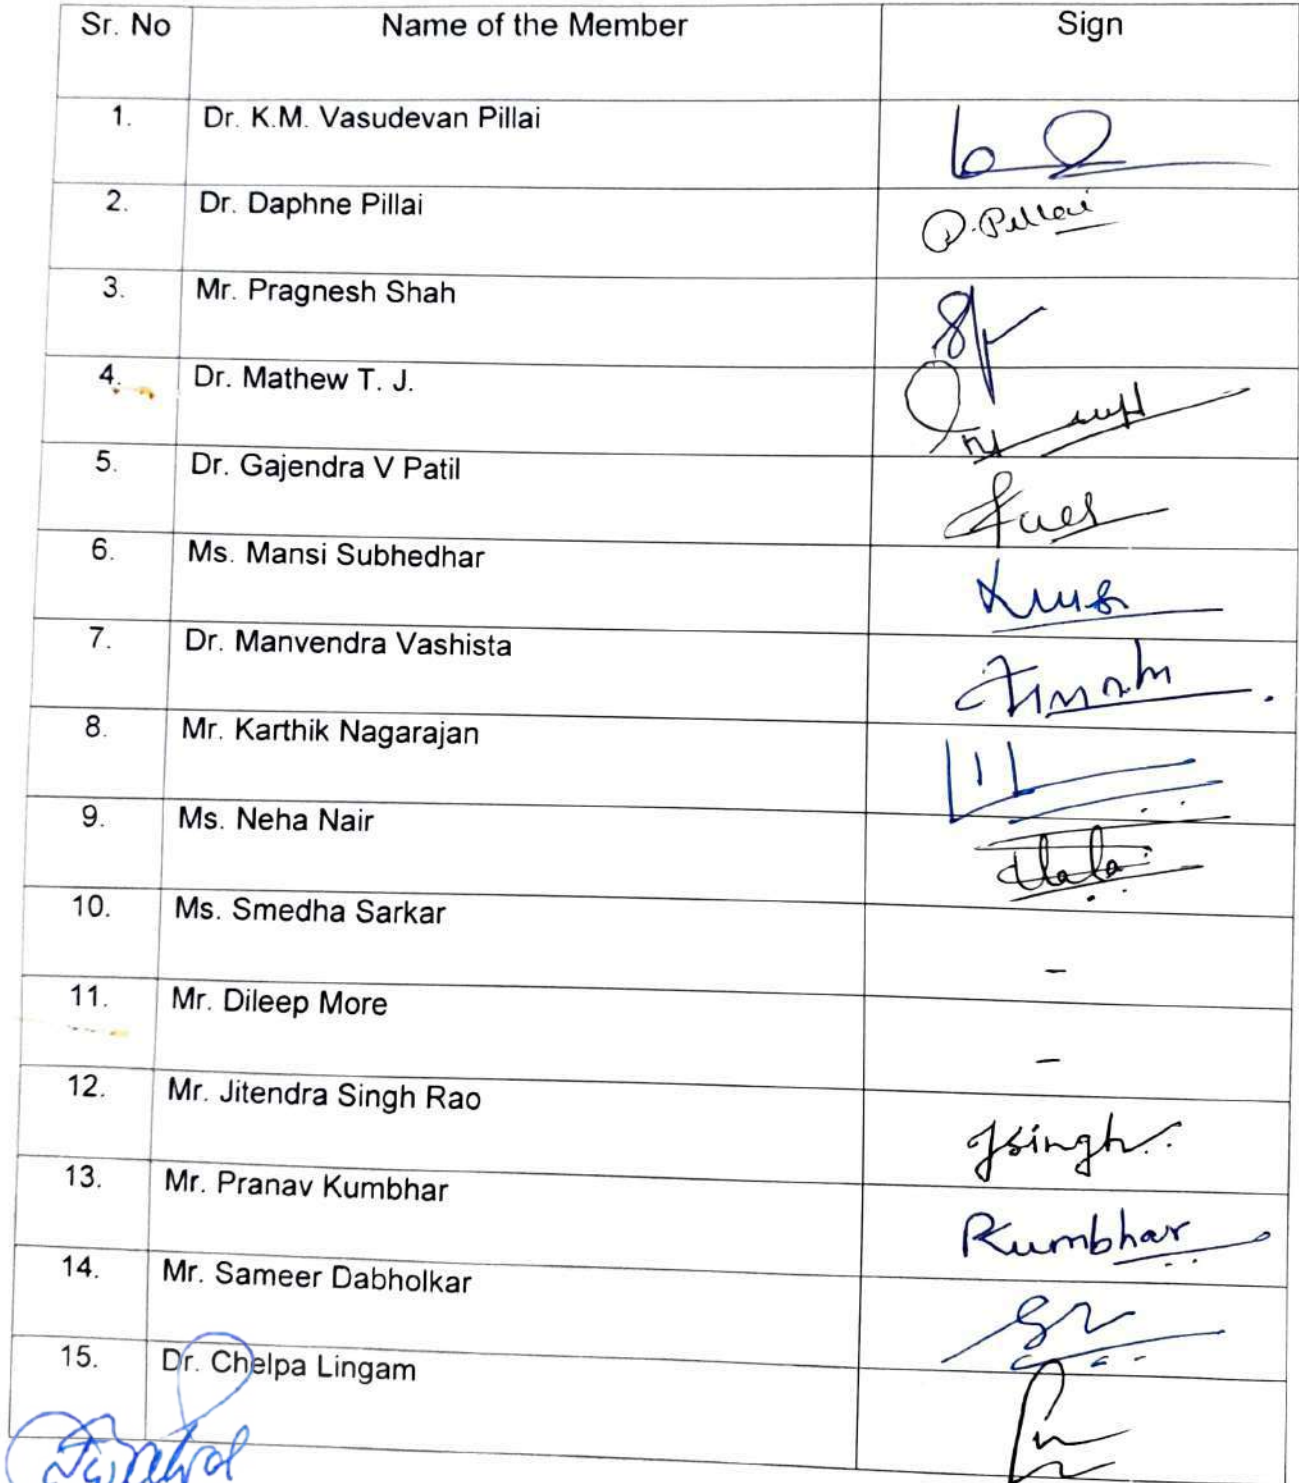 Sr. No Name of the Member Sign
1. Dr. K.M. Vasudevan Pillai
2. Dr. Daphne Pillai D. Pillai
3. Mr. Pragnesh Shah
4. Dr. Mathew T. J.
5. Dr. Gajendra V Patil
6. Ms. Mansi Subhedhar
7. Dr. Manvendra Vashista
8. Mr. Karthik Nagarajan
9. Ms. Neha Nair
10. Ms. Smedha Sarkar -
11. Mr. Dileep More -
12. Mr. Jitendra Singh Rao Jsingh
13. Mr. Pranav Kumbhar Pkumbhar
14. Mr. Sameer Dabholkar
15. Dr. Chelpa Lingam